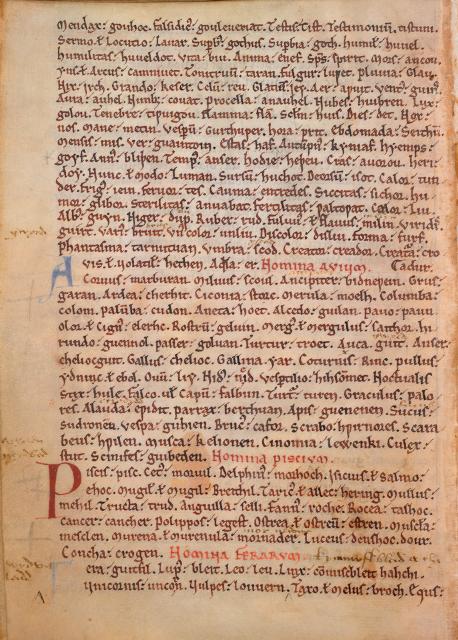 Mendax: gouhoc. falsidic: gouleueriat. Testis: tist. Testimonium. tistuni.
Sermo ł Locutio: Lauar. Supb: gothus. Supbia: goth. humil: huuel.
humilitas: huueldot. vita: biu. Anima: enef. Sps: spirit. Mors: ancou.
yris ł Arcus: cammuet. Tonitruum: taran. fulgur: luhet. pluuia: Glau.
Nix: irch. Grando: keser. Gelu: reu. Glacies: iey. Aer: ayuit. vent: guins.
Aura: auhel. Nimb: couat. procella: anauhel. Nubes: huibren. Lux:
golou. Tenebre: tipulgou. flamma: flā. Seclm: huis. Dies: det. Nox:
nos. Mane: metin. vespum: gurthuper. hora: prit. Ebdomada: Seithun
Mensis: mis. ver: guaintoin. Estas: haf. Autūpn: kyniaf. hyemps:
goyf. Ann: blipen. Temp: anser. hodie: hepeu. Cras: auorou. heri:
doy. Nunc ł modo: Luman. Sursū: huchot. Deorsū: isot. Calor: tun
der. frig: iein. feruor: tes. Cauma: entredes. Siccitas: sichor. hu
mor: glibor. Sterilitas: anuabat. fertilitas: paltopat. Color: Liu.
Alb: guyn. Niger: dup. Ruber: rud. fuluus ł flauus: milin. Viridis:
guirt. vari: bruit. vnicolor: unliu. Discolor: disliu. forma: furf.
Phantasma: tarnutuan. Umbra: scod. Creator: creador. Creata: cro
Avis ł volatil: hethen. Aqila: er. Nomina avium. ladur.
Coruus: marburan. Miluus: scoul. Ancipiter: bidnepein. Grus:
garan. Ardea: cherhit. Ciconia: storc. Merula: moelh. Columba:
colom. palūba: cudon. Aneta: hoet. Alcedo: guilan. pauo: paun
olor ł Cign: elerhc. Rostrū: geluin. Merg ł Mergulus: saithor. hi
rundo: guennol. passer: goluan. Turtur: troet. Auca: guit. Anser:
cheliocguit. Gallus: chelioc. Gallina: yar. Coturnix: Rinc. pullus:
ydnunc ł ebol. Ouū: uy. Nid: neid. vesptilio: hihsomet. Noctualis
strix: hule. falco, ul Capū: falbun. Turt: turen. Graculus: palo
res. Alauda: epidit. parrax: berthuan. Apis: guenenen. Fucus:
sudronen. vespa: guhien. Bruc: cafor. Scrabo: hpirnores. Scara
beus: hpilen. Musca: kelionen. Cinomia: lewenki. Culex:
stut. Scinifes: guibeden. Nomina piscium.
Piscis: pisc. Cet: moruil. Delphin: morhoch. Isicius ł salmo:
ehoc. Mugil ł mugil: Breithil. Taric ł allec: hering. Mullus:
mehil. Tructa: trud. anguilla: selli. fannus: roche. Rocea: talhoc.
cancer: cancher. Polippos: legest. Ostrea ł ostreū: estren. Muscla:
mesclen. Murena ł murenula: mornader. Luceus: denshoc. dour.
Concha: crogen. Nomina ferarum
era: guitfil. Lup: bleit. Leo: leu. Linx: commisbleit hahchi
Unicornis: uncorn. Uulpes: louuern. Taxo ł melus: broch. ł qus: